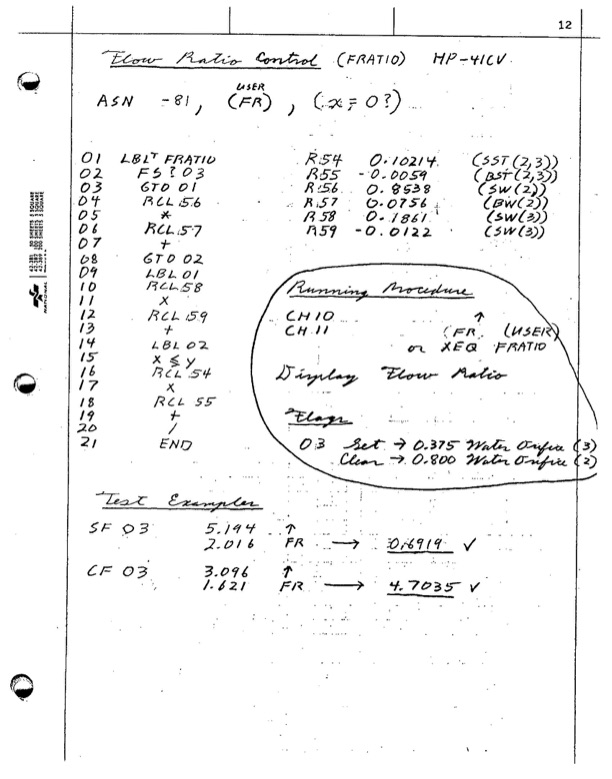 12
Flow Ratio Control (FRATIO) HP-41CV
USER
ASN -81, (FR), (x=0?)
01 LBLT FRATIO R54 0.10214 (SST(2,3))
02 FS?03 R55 -0.0059 (BST(2,3))
03 GTO 01 R56 0.8538 (SW(2))
04 RCL 56 R57 0.0756 (BW(2))
05 * R58 0.1861 (SW(3))
06 RCL 57 R59 -0.0122 (SW(3))
07 +
08 GTO 02
09 LBL 01
10 RCL 58 Running Procedure
11 x
12 RCL 59 CH10 ↑
13 + CH 11 (FR (USER)
14 LBL 02 or XEQ FRATIO
15 x ≤ y
16 RCL 54 Display Flow Ratio
17 x
18 RCL 55
19 + Flags
20 /
21 END 03 Set → 0.375 Water Orifice (3)
Clear → 0.800 Water Orifice (2)
Test Examples
SF 03 5.194 ↑
2.016 FR → 0.6919 ✓
CF 03 3.096 ↑
1.621 FR → 4.7035 ✓
NATIONAL